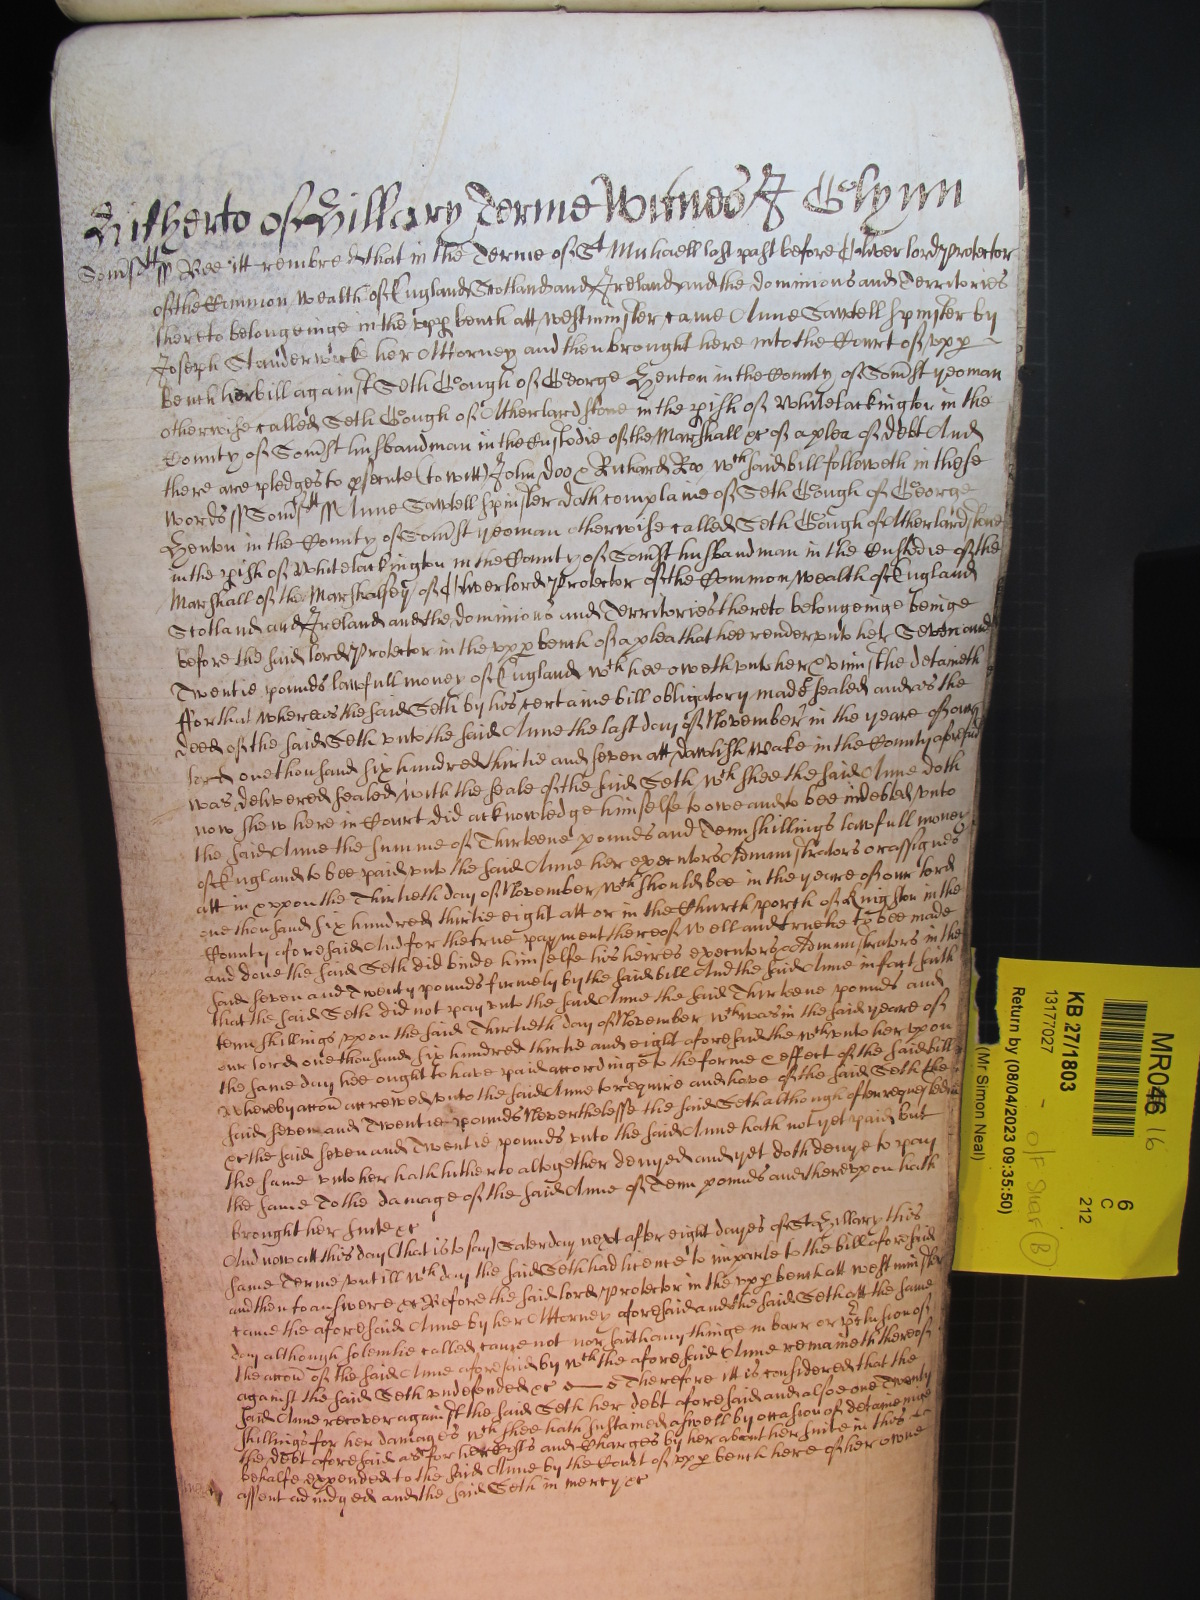 Hitherto of Hillary Terme Witnes J Glynn
Somst ss Bee itt rembred that in the Terme of St Michaell last past before Oliver lord Protector
of the Common Wealth of England Scotland and Ireland and the dominions and Territories
thereto belongeinge in the upp bench att Westminster came Anne Sawtell Spinster by
Joseph Standerwick her Attorney and then brought here into the Court of upp
Bench her bill against Seth Gough of George Henton in the County of Somst yeoman
otherwise called Seth Gough of Atherlard stone in the pish of Whitelackington in the
County of Somst husbandman in the Custodie of the Marshall &c of a plea of debt And
there are pledges to psecute (to witt) John Doo & Richard Roo wch said bill followeth in these
words ss Somst ss Anne Sawtell Spinster doth complaine of Seth Gough of George
Henton in the County of Somst yeoman otherwise called Seth Gough of Atherlard stone
in the pish of Whitelackington in the County of Somst husbandman in the Custodie of the
Marshall of the Marshalsey of Oliver lord Protector of the Common Wealth of England
Scotland and Ireland and the dominions and Territories thereto belongeinge beinge
before the said lord Protector in the upp bench of a plea that hee render unto her Seven and
Twentie pounds lawfull money of England wch hee oweth unto her & uniustlie detaineth
ffor that whereas the said Seth by his certaine bill obligatory made sealed and as the
deed of the said Seth unto the said Anne the last day of November in the yeare of our
lord one thousand six hundred thirtie and seven att dawlish Wake in the County aforesaid
was delivered sealed with the seale of the said Seth wch shee the said Anne doth
now shew here in Court did acknowledge himselfe to owe and to bee indebted unto
the said Anne the summe of Thirteene pounds and Tenn shillings lawfull money
of England to bee paid unto the said Anne her executors Administrators or assignes
att in or upon the Thirtieth day of November wch should bee in the yeare of our lord
one thousand six hundred thirtie eight att or in the Church porch of Kingston in the
County aforesaid And for the true payment thereof well and truelie to bee made
and done the said Seth did binde himselfe his heires executors & Administrators in the
said seven and Twenty pounds firmely by the said bill And the said Anne in fact saith
that the said Seth did not pay unto the said Anne the said Thirteene pounds and
tenn shillings upon the said Thirtieth day of November wch was in the said yeare of
our lord one thousand six hundred thirtie and eight aforesaid the wch unto her upon
the same day hee ought to have paid accordinge to the forme & effect of the said bill
Whereby accon accrewed unto the said Anne to require and have of the said Seth the
said seven and Twentie pounds Neverthelesse the said Seth although often requested
&c the said seven and Twentie pounds unto the said Anne hath not yet paid but
the same unto her hath hitherto altogether denyed and yet doth denye to pay
the same To the damage of the said Anne of Tenn pounds and thereupon hath
brought her suite &c
And now att this day (that is to say) Saterday next after eight dayes of St Hillary this
same Terme untill wch day the said Seth had licence to imparle to the bill aforesaid
and then to answere &c Before the said lord Protector in the upp bench att Westminster
came the aforesaid Anne by her Attorney aforesaid and the said Seth att the same
day although solemlie called came not nor saith any thinge in barr or pclusion of
the accon of the said Anne aforesaid by wch the aforesaid Anne remaineth thereof
against the said Seth undefended &c Therefore itt is considered that the
said Anne recover against the said Seth her debt aforesaid and alsoe one Twenty
shillings for her damages wch shee hath sustained aswell by occasion of detaineinge
the debt aforesaid as for her Costs and Charges by her about her suite in this
behalfe expended to the said Anne by the Court of upp bench here of her owne
assent adiudged and the said Seth in mercy &c
MR046
16
6
C
212
KB 27/1803
13177027
Return by (08/04/2023 09:35:50)
(Mr Simon Neal)